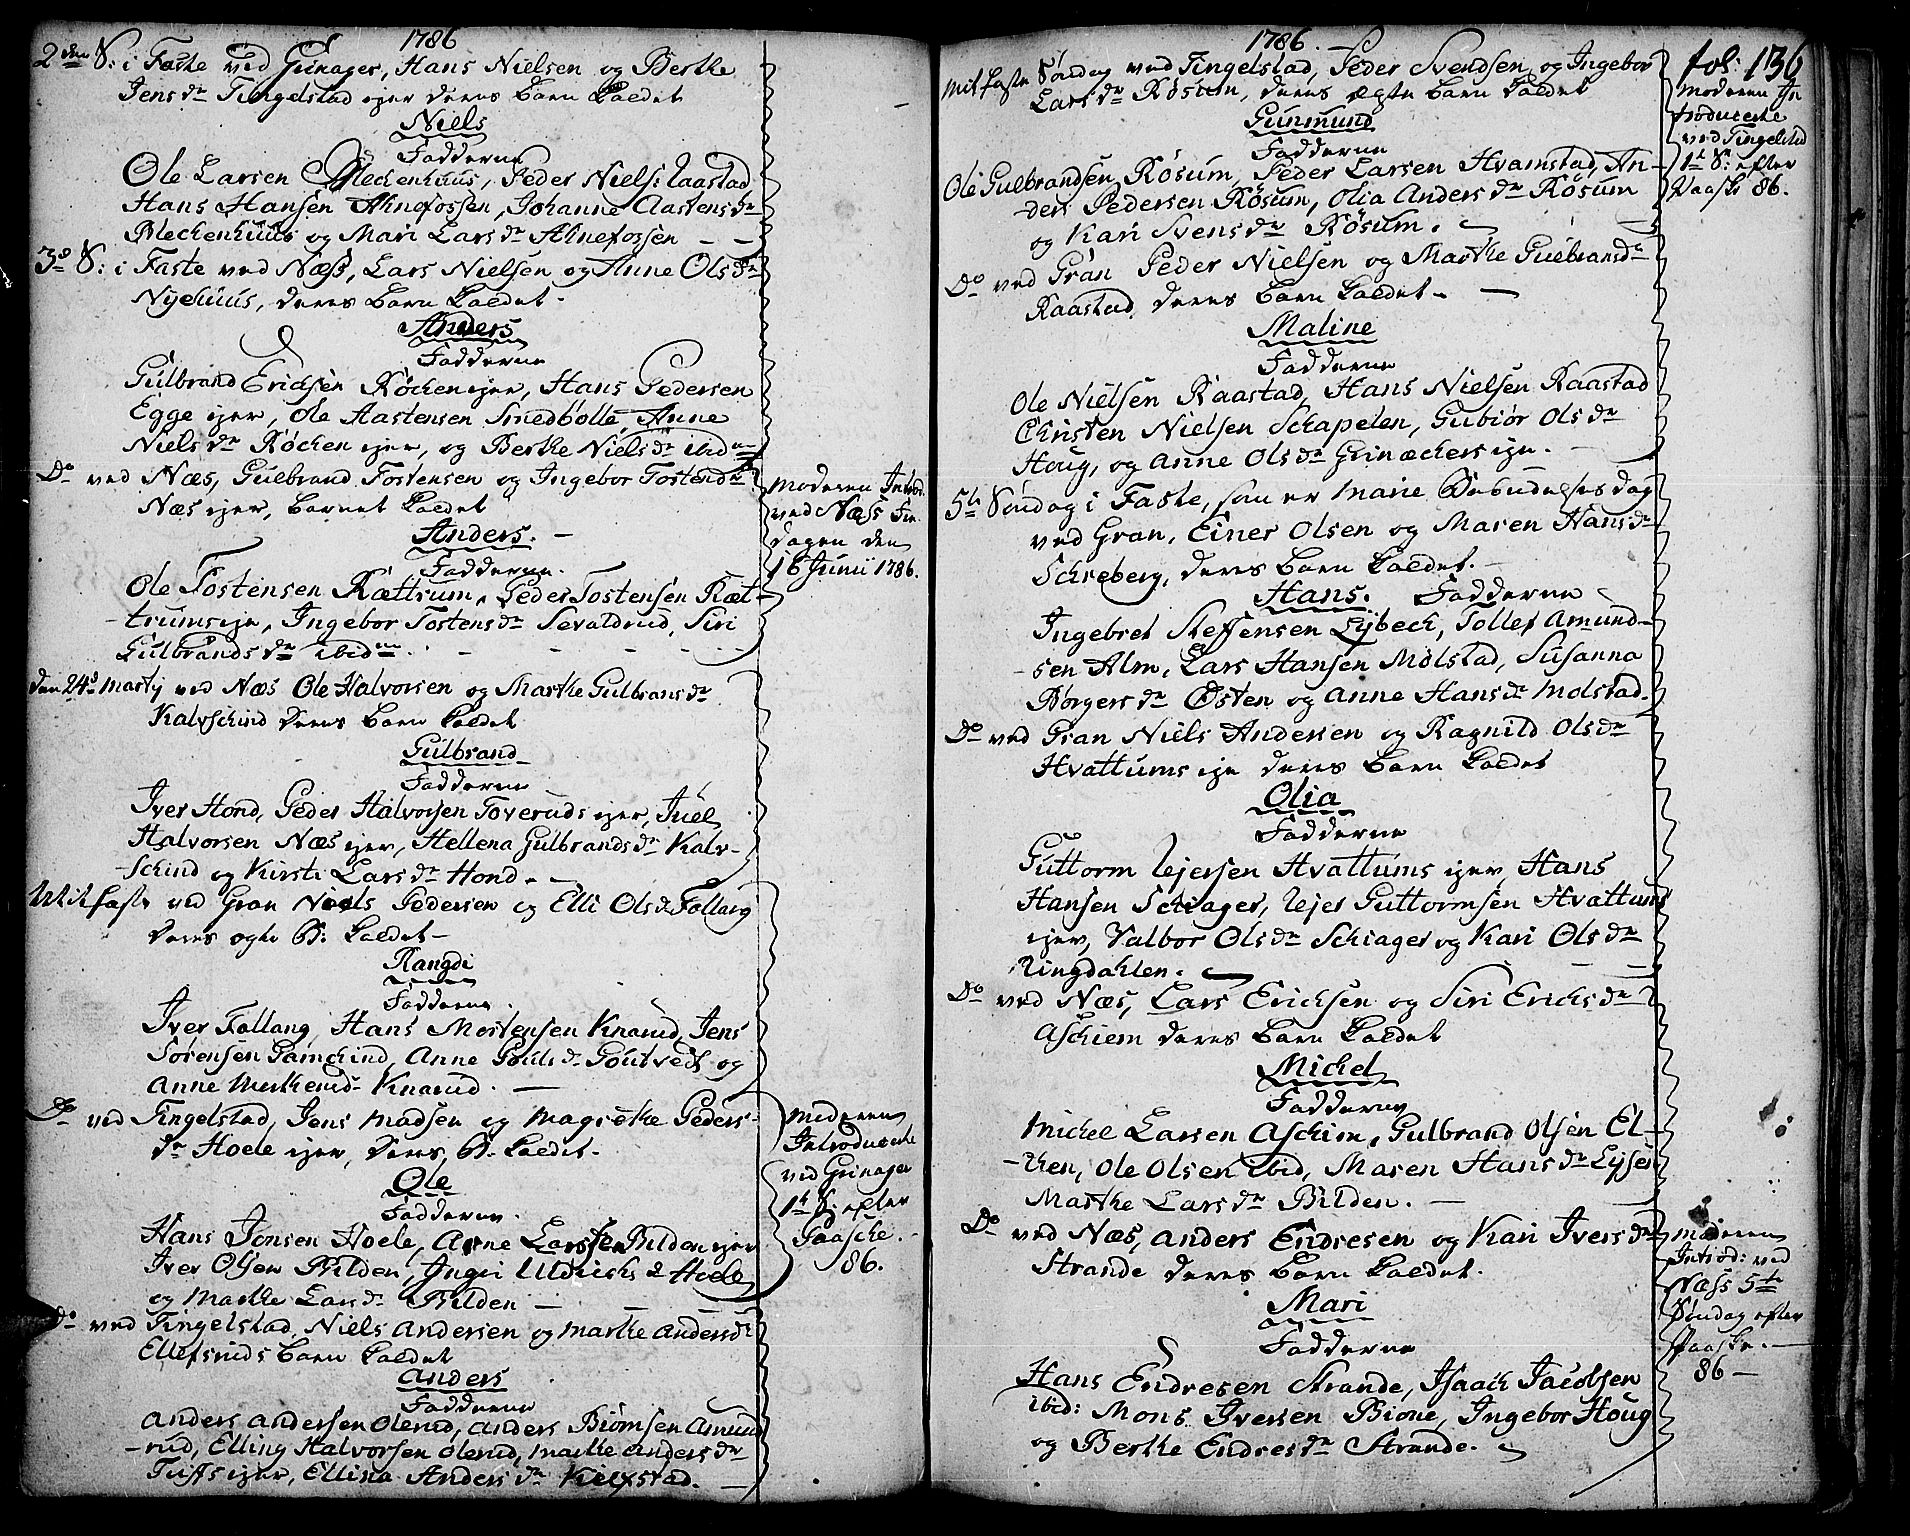 1786
2den S: i Faste ved Grinager, Hans Nielsen og Berthe
Jens dr Tingelstad ejer deres Barn kaldet
Niels
Fadderne
Ole Larsen Bleckenhuus, Peder Niels: Raastad,
Hans Hansen Ahnefossen, Johanne Aastens dr
Bleckenhuus og Mari Lars dr Ahnefossen
3d S: i Faste ved Næss, Lars Nielsen og Anne Ols dr
Nyehuus, deres Barn kaldet
Anders
Fadderne
Gulbrand Ericksen Røcken ejer, Hans Pedersen
Egge ejer, Ole Aastensen Smedbølle, Anne
Niels dr Røcken ejer, og Berthe Niels dr ibidem
Do ved Næs, Gulbrand Tostensen og Ingebor Tostend dr
Næs ejer, Barnet kaldet
Anders.
Fadderne.
Ole Tostensen Rættrum, Peder Tostensen Ræt-
-trumseje, Ingebor Tostens dr Sevaldrud, Siri
Gulbrands dr ibidem.
Moderen Introd.
ved Næss Fre
dagen den
16 Junii 1786.
den 24de Martij ved Næs Ole Halvorsen og Marthe Gulbrans dr
Kalvschind deres Barn kaldet
Gulbrand
Fadderne
Iver Hond, Peder Halvorsen Toveruds ejer, Juel
Halvorsen Næs ejer, Hellena Gulbrands dr Kalv-
-schind og Kirsti Lars dr Hond.
Mitfaste ved Gran Niels Pedersen og Elli Ols dr Follang
deres ægte B: kaldet
Rangdi
Fadderne.
Iver Follang, Hans Mortensen Knarud, Jens
Sørensen Gamchind, Anne Pouls dr og
Anne Knarud.
Do ved Tingelstad, Jens Madsen og Magrethe Peders-
dr Hoele ejer, deres B. kaldet.
Ole
Fadderne.
Hans Jonsen Hoele, Arne Larssen Bilden ejer
Iver Olsen Bilden, Inger Uldrichs dr Hoele
og Marthe Lars dr Bilden
Moderen
Introducerte
ved Grinager
1te S: efter
Paasche.
86.
Do ved Tingelstad, Niels Andersen og Marthe Anders dr
Ellefsruds Barn kaldet
Anders
Fadderne
Anders Andersen Olerud, Anders Biørnsen Amund
-rud, Elling Halvorsen Olerud, Marthe Anders dr
Tuffs ejer, Ellina Anders dr Kiexstad.
1786.
fol: 136
Mitfaste Søndag ved Tingelstad, Peder Svendsen og Ingebor
Lars dr Røsum, deres ægte Barn kaldet
Gunmund
Fadderne
Ole Gulbrandsen Røsum, Peder Larsen Hvamstad, An-
-ders Pedersen Røsum, Olia Anders dr Røsum
og Kari Svens dr Røsum.
Moderen In
troducerte
ved Tingelstad
1te Sn efter
Paaske 86.
Do ved Gran Peder Nielsen og Marthe Gulbrans dr
Raastad, deres Barn kaldet
Maline
Fadderne
Ole Nielsen Raastad, Hans Nielsen Raastad
Christen Nielsen Schapelen, Gubiør Ols dr
Houg, og Anne Ols dr Grinæckers eje.
5te Søndag i Faste, som er Marie Bebudelses dag
ved Gran, Einer Olsen og Maren Hans dr
Schreberg, deres Barn kaldet.
Hans. Fadderne
Ingebret Steffensen Lybeck, Tollef Amund-
-sen Alm, Lars Hansen Molstad, Susanna
Børgers dr Østen og Anne Hans dr Molstad.
Do ved Gran Niels Andersen og Ragnild Ols dr
Hvattums eje deres Barn kaldet
Olia
Fadderne
Guttorm Ejersen Hvattums ejer, Hans
Hansen Schiager, Ejer Guttormsen Hvattums
ejer, Valbor Ols dr Schiager og Kari Ols dr
Ringdahlen.
Do ved Næs, Lars Ericksen og Siri Erichs dr
Aschiem deres Barn kaldet
Michel
Fadderne
Michel Larsen Aschim, Gulbrand Olsen El-
-ken, Ole Olsen ibid, Maren Hans dr Lysen
Marthe Lars dr Bilden.
Do ved Næs, Anders Endresen og Kari Ivers dr
Strande deres Barn kaldet.
Mari
Fadderne
Hans Endresen Strande, Isaach Jacobsen
ibid: Mons Iversen Bione, Ingebor Houg
og Berthe Endres dr Strande.
Moderen
Introd: ved
Næss 5te
Søndag efter
Paaske.
86